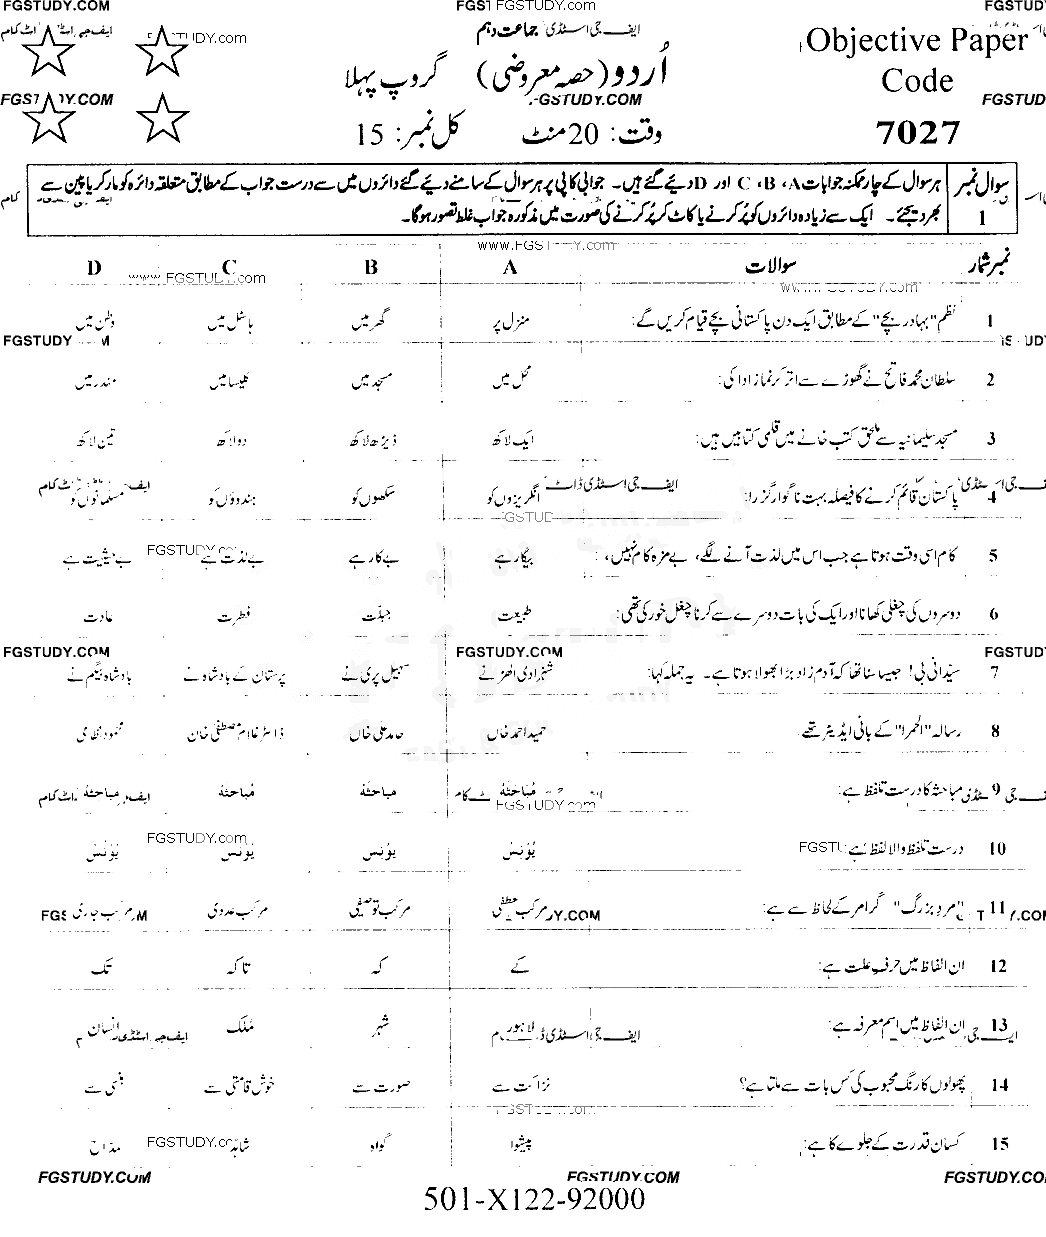 FGSTUDY.COM FGSTUDY.com FGSTUDY.COM
ایف جی اسٹڈی جماعت دہم
اُردو (حصہ معروضی) گروپ پہلا
Objective Paper
Code
7027
وقت: 20 منٹ کل نمبر: 15
سوال نمبر 1
ہر سوال کے چار ممکنہ جوابات A، B، C اور D دیئے گئے ہیں۔ جوابی کاپی پر ہر سوال کے سامنے دیئے گئے دائروں میں سے درست جواب کے مطابق متعلقہ دائرہ کو مارکر یا پین سے
بھر دیجئے۔ ایک سے زیادہ دائروں کو پُر کرنے یا کاٹ کر پُر کرنے کی صورت میں مذکورہ جواب غلط تصور ہوگا۔
نمبر شمار سوالات A B C D
1 نظم "بہادر بچے" کے مطابق ایک دن پاکستانی بچے قیام کریں گے: منزل پر گھر میں ہاسٹل میں وطن میں
2 سلطان محمد فاتح نے گھوڑے سے اتر کر نماز ادا کی: محل میں مسجد میں کلیسا میں مندر میں
3 مسجد سلیمانیہ سے ملحق کتب خانے میں قلمی کتابیں ہیں: ایک لاکھ ڈیڑھ لاکھ دو لاکھ تین لاکھ
4 پاکستان قائم کرنے کا فیصلہ بہت ناگوار گزرا: انگریزوں کو سکھوں کو ہندوؤں کو مسلمانوں کو
5 کام اسی وقت ہوتا ہے جب اس میں لذت آنے لگے، بے مزہ کام نہیں، : بیگار ہے بے کار ہے بے لذت ہے بے حیثیت ہے
6 دوسروں کی چغلی کھانا اور ایک کی بات دوسرے سے کرنا چغل خور کی تھی: طبیعت جبلت فطرت عادت
7 سیدانی بی! جیسا سنا تھا کہ آدم زاد بڑا بھولا ہوتا ہے۔ یہ جملہ کہا: شہزادی الھڑ نے سہیل پری نے پرستان کے بادشاہ نے بادشاہ بیگم نے
8 رسالہ "الحمرا" کے بانی ایڈیٹر تھے: حمید احمد خاں حامد علی خاں ڈاکٹر غلام مصطفیٰ خان محمود نظامی
9 مباحثہ کا درست تلفظ ہے:
10 درست تلفظ والا لفظ ہے:
11 "مرد بزرگ" گرامر کے لحاظ سے ہے: مرکب عطفی مرکب توصیفی مرکب عددی مرکب جاری
12 ان الفاظ میں حرفِ علت ہے: کے کہ تاکہ تک
13 ان الفاظ میں اسم معرفہ ہے: لاہور شہر مُلک انسان
14 پھولوں کا رنگ محبوب کی کس بات سے ملتا ہے؟ نزاکت سے صورت سے خوش قامتی سے ہنسی سے
15 کسان قدرت کے جلوے کا ہے: پیشوا گواہ شاہد مداح
FGSTUDY.COM FGSTUDY.COM FGSTUDY.COM
501-X122-92000